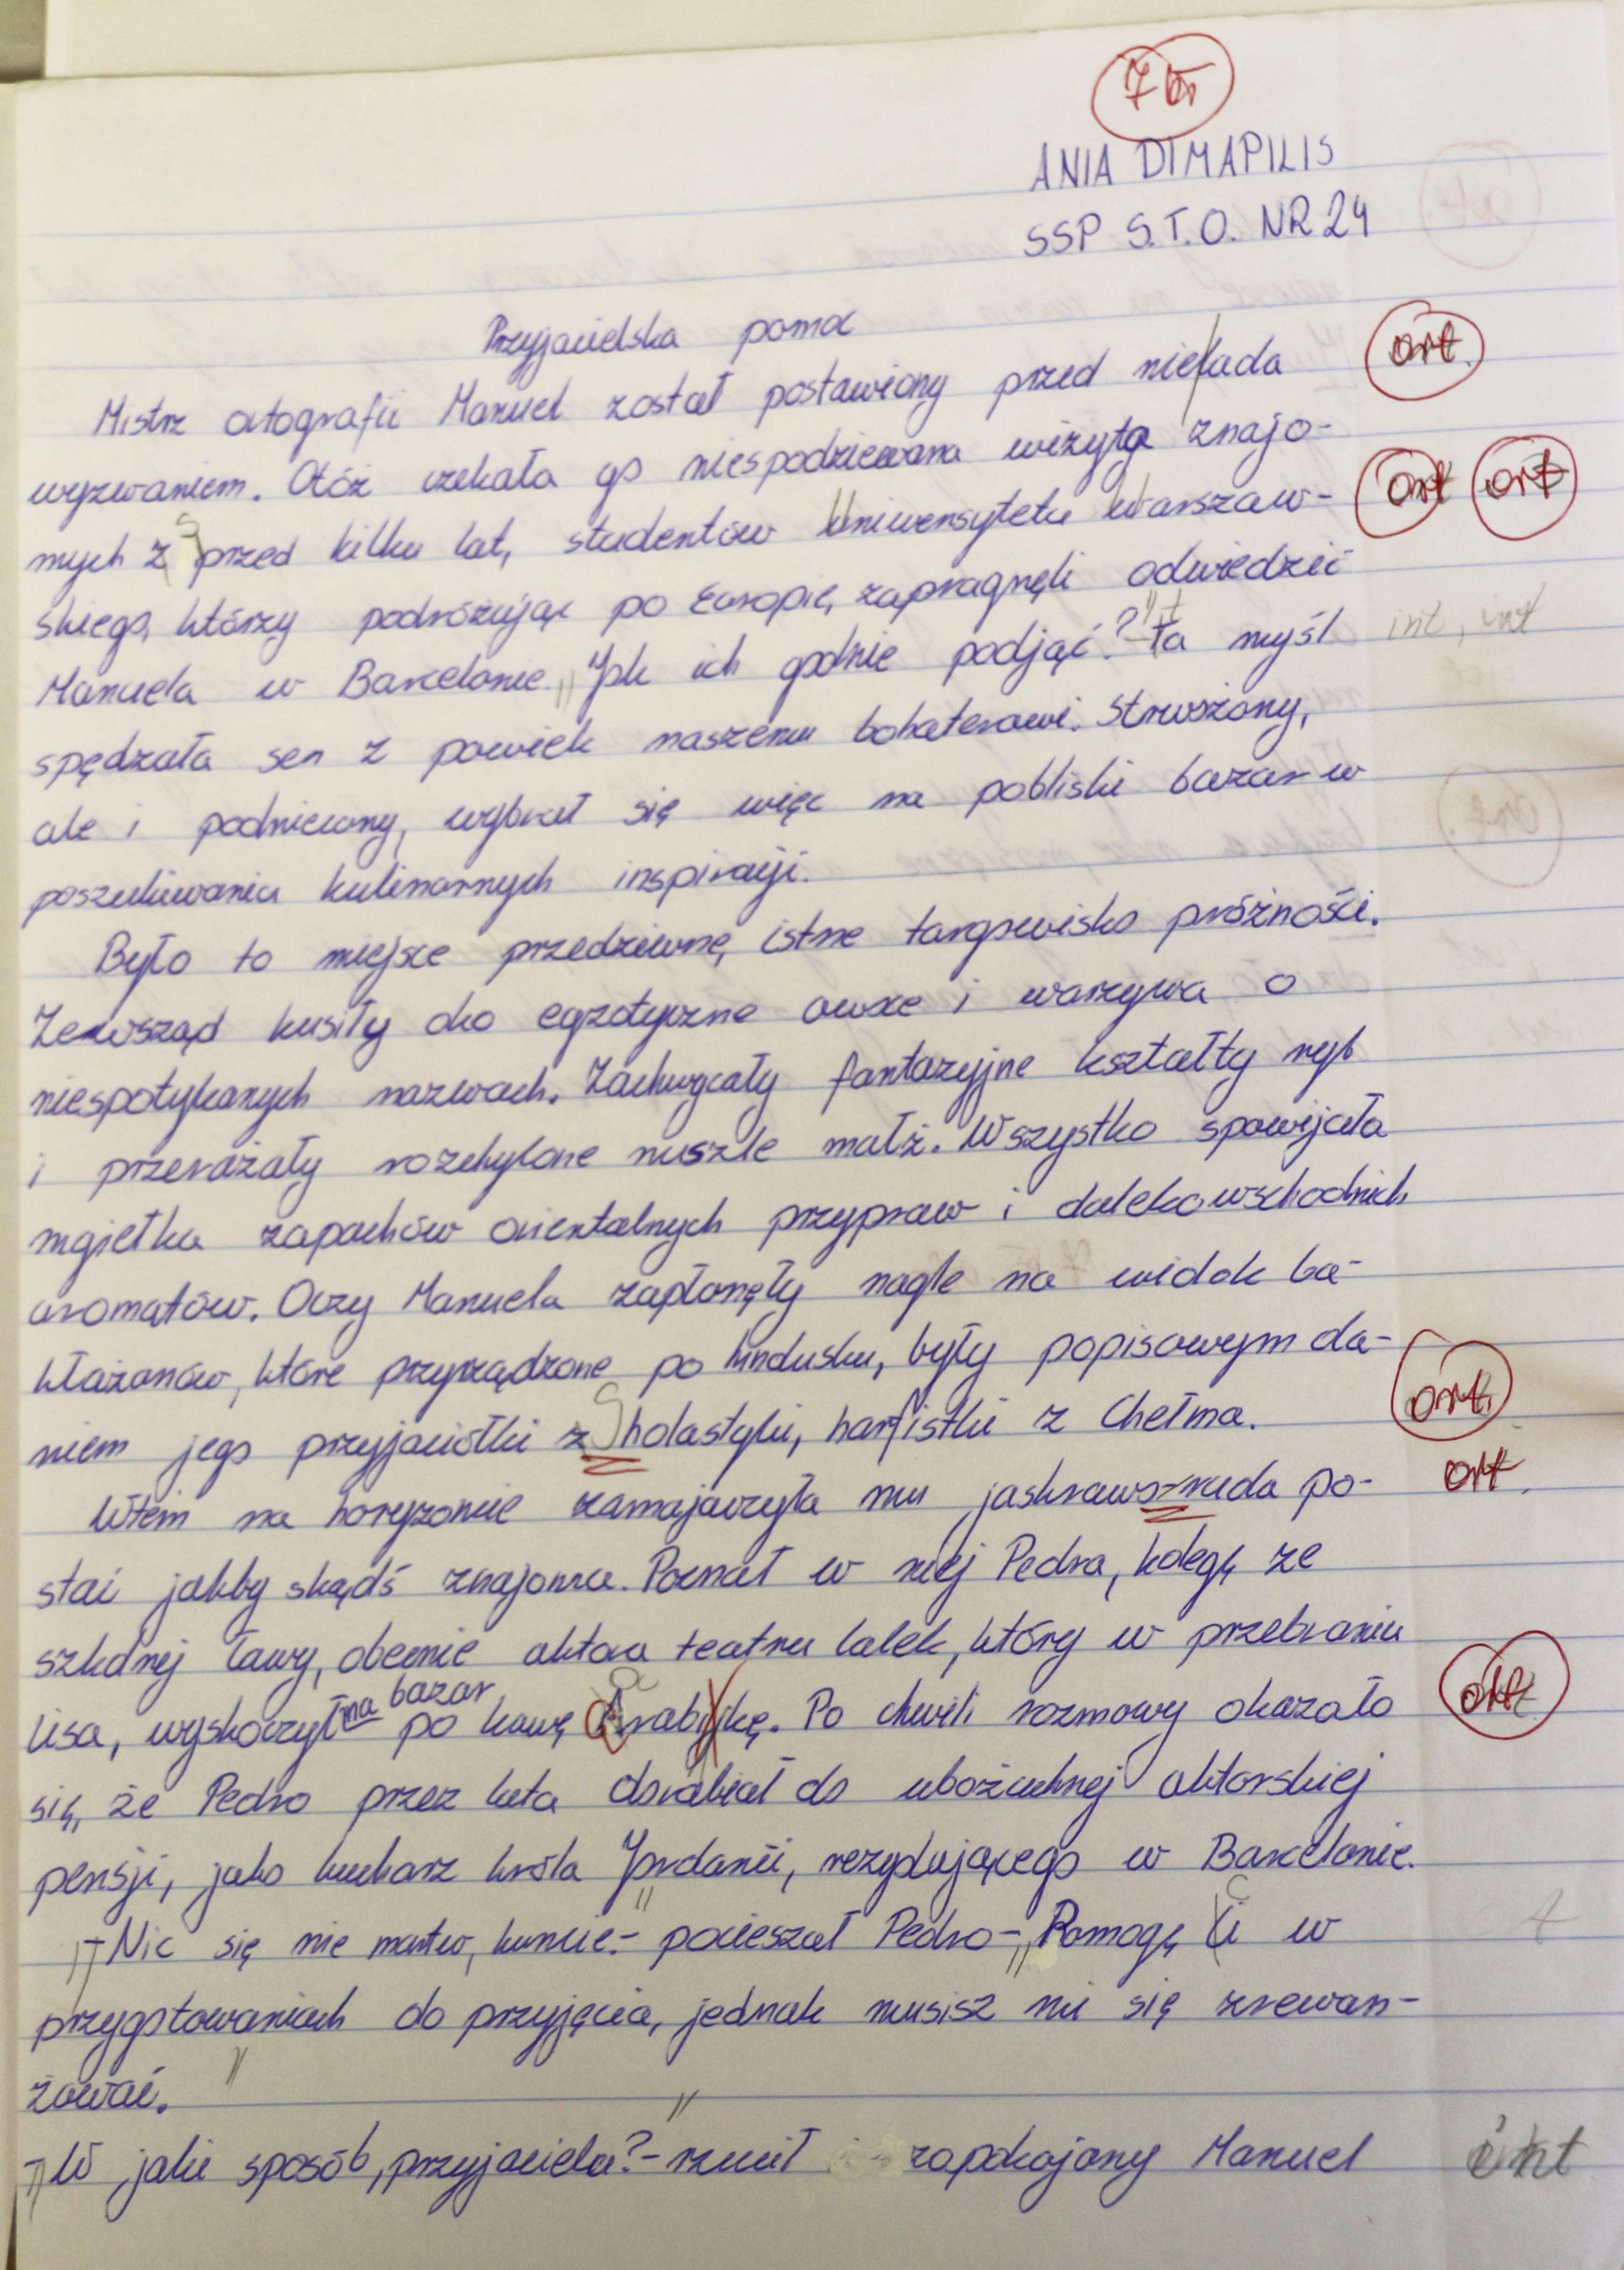 7 bł
ANIA DIMAPILIS
SSP S.T.O. NR 24
Przyjacielska pomoc
ort.
Mistrz ortografii Manuel został postawiony przed nielada
wyzwaniem. Otóż czekała go niespodziewana wizyta znajo-
ort ort
mych z przed kilku lat, studentów Uniwersytetu Warszaw-
skiego, którzy podróżując po Europie, zapragnęli odwiedzić
Manuela w Barcelonie. "Jak ich godnie podjąć?" Ta myśl
int, int
spędzała sen z powiek naszemu bohaterowi. Strwożony,
ale i podniecony, wybrał się więc na pobliski bazar w
poszukiwaniu kulinarnych inspiracji.
Było to miejsce przedziwne, istne targowisko próżności.
Zewsząd kusiły oko egzotyczne owoce i warzywa o
niespotykanych nazwach. Zachwycały fantazyjne kształty ryb
i przerażały rozchylone muszle małż. Wszystko spowijała
mgiełka zapachów orientalnych przypraw i dalekowschodnich
aromatów. Oczy Manuela zapłonęły nagle na widok ba-
kłażanów, które przyrządzone po hindusku, były popisowym da-
ort.
niem jego przyjaciółki holastyki, harfistki z Chełma.
Wtem na horyzoncie zamajaczyła mu jaskraworuda po-
ort.
stać jakby skądś znajoma. Poznał w niej Pedra, kolegę ze
szkolnej ławy, obecnie aktora teatru lalek, który w przebraniu
lisa, wyskoczył na bazar po kawę Arabikę. Po chwili rozmowy okazało
ort
się, że Pedro przez lata dorabiał do ubożuchnej aktorskiej
pensji, jako kucharz króla Jordanii, rezydującego w Barcelonie.
"- Nic się nie martw, kumie." - pocieszał Pedro - "Pomogę Ci w
przygotowaniach do przyjęcia, jednak musisz mi się zrewan-
żować."
"- W jaki sposób, przyjacielu?" - rzucił zapokojony Manuel
int